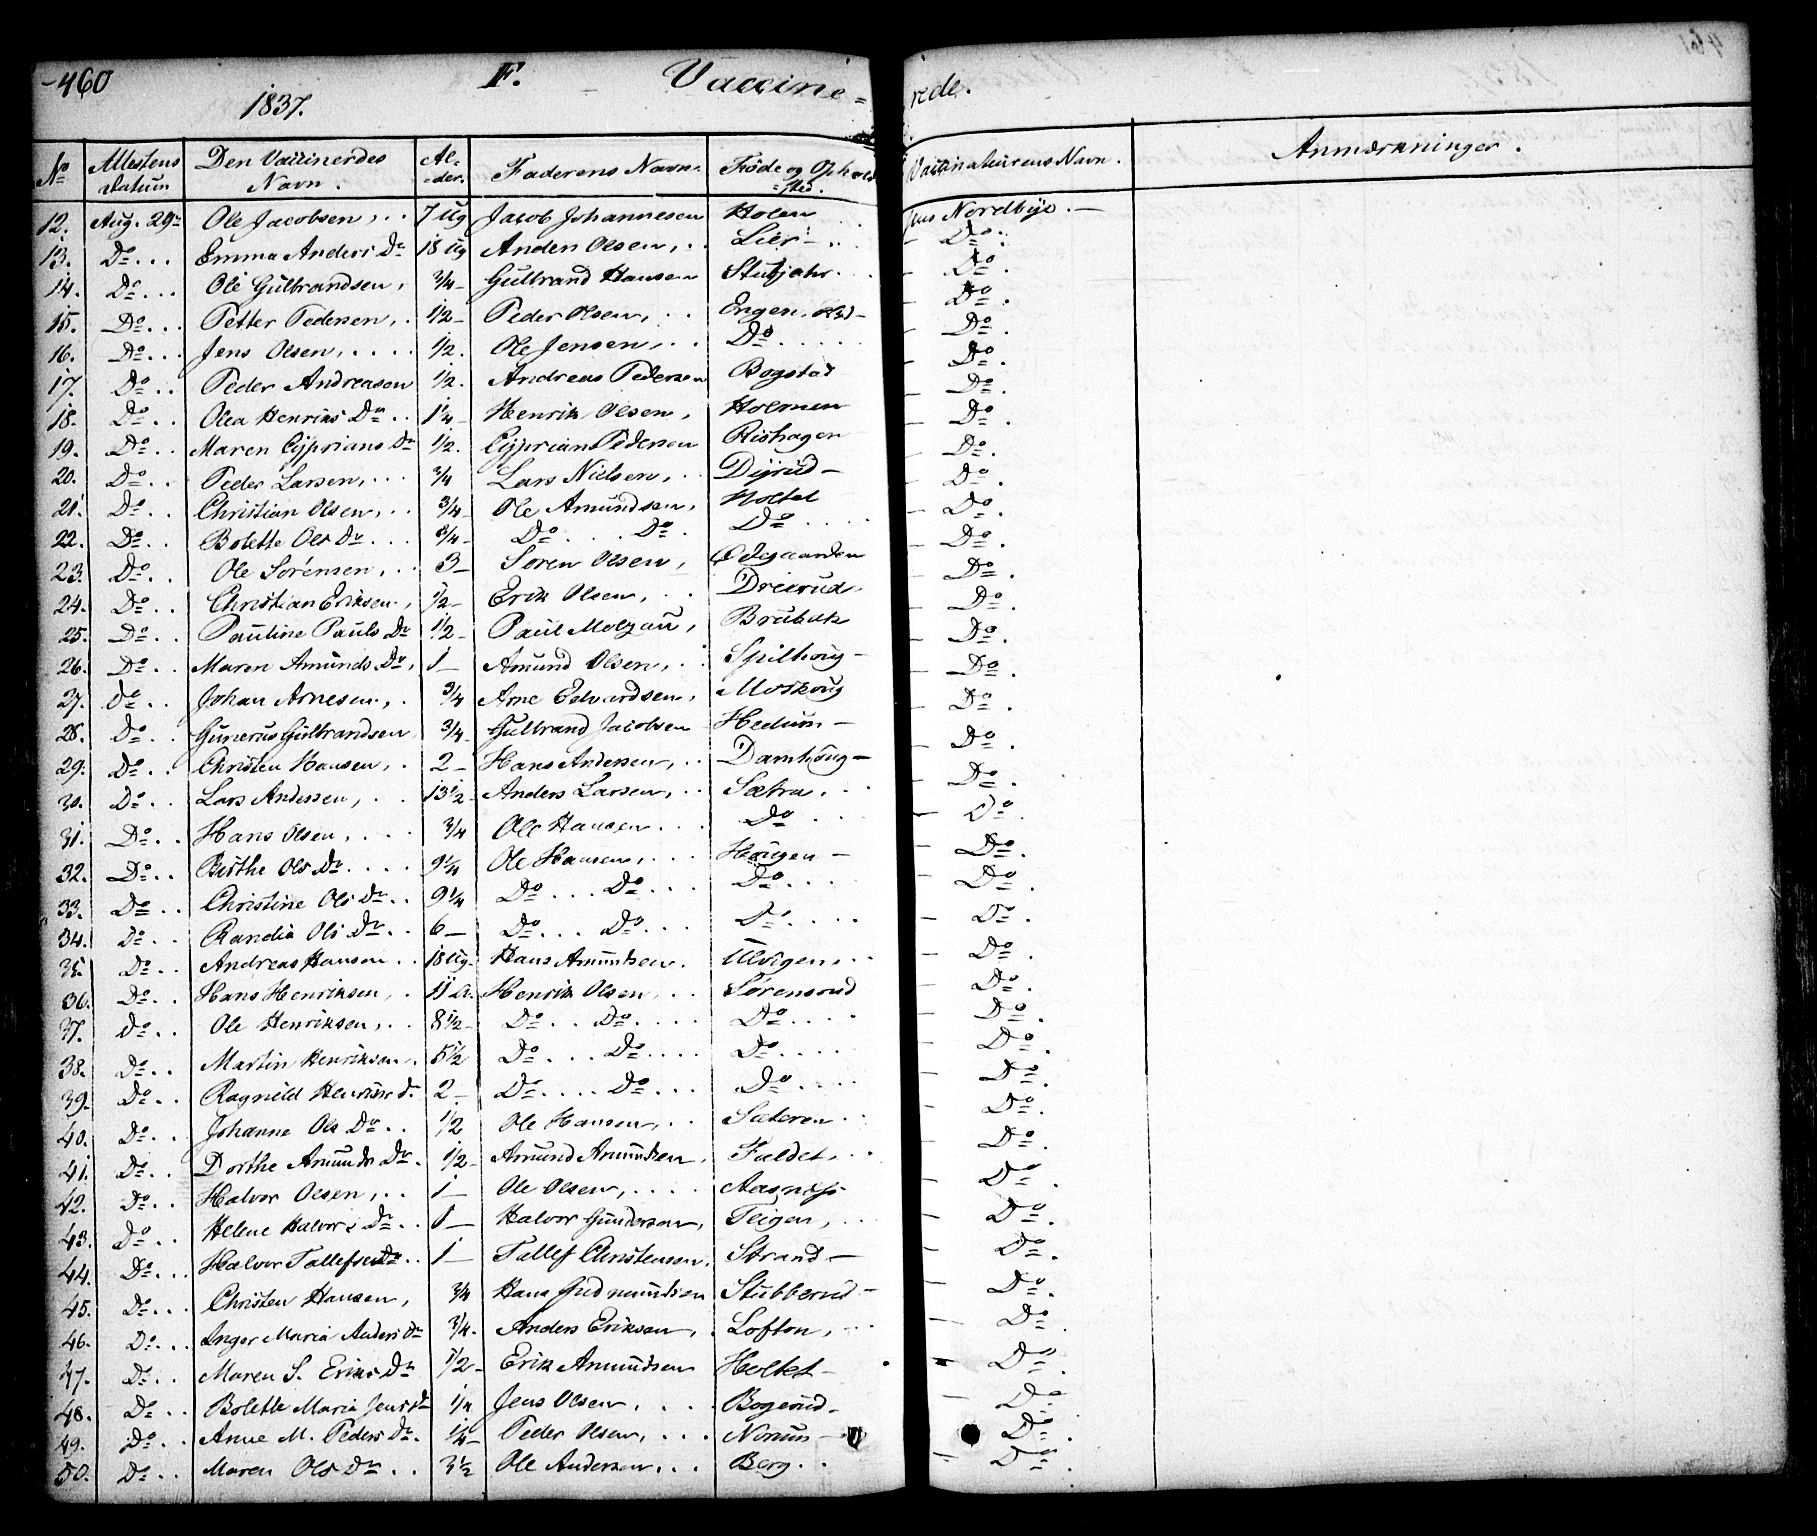 460 F. Vaccine=rede.
1837.
No Attestens Datum Den Vaccineredes Navn. Al-der. Faderens Navn. Føde og Opholds=sted. Vaccinateurens Navn. Anmærkninger.
12. Aug. 29 Ole Jacobsen, . . 7 Ug Jacob Johannesen Holen Jens Nordbye. —
13. Do . . . Emma Anders Dr 18 Ug Anden Olsen, . . Lier - . . — Do.
14. Do . . . Ole Gulbrandsen, 3/4 – Gulbrand Hansen . . . — Do.
15. Do . . . Petter Pedersen, . 1/2 – Peder Olsen, . . . Engen — Do.
16. Do . . . Jens Olsen, . . . . 1/2. Ole Jensen, . . . Do . . . . . — Do.
17. Do . . Peder Andreasen 1/2. Andreas Pedersen Bogstad — Do.
18. Do . . Olea Henriks Dr . . 1 1/4 – Henrik Olsen, Holmen — Do.
19. Do . . Maren Cyprians Dr 1/2. Cyprian Pedersen Rishagen — Do.
20. Do . . Peder Larsen, . . . 3/4 Lars Nielsen, . . Dyrud – — Do.
21. Do . . Christian Olsen, . . 3/4 – Ole Amundsen, Holtet — Do.
22. Do . . Bolette Ols Dr . . . 3/4 – Do . . . . Do . Do . . . . — Do.
23. Do . . Ole Sørensen, . . 3 – Søren Olsen, Ødegaarden — Do.
24. Do . . Christian Eriksen, 1/2 – Erik Olsen, . . . — Do.
25. Do . . Pauline Pauls Dr 1 1/2 – Paul Molzau, Brubak — Do.
26. Do . . Maren Amunds Dr, 1 – Amund Olsen, . . Spilhoug – — Do.
27. Do . . Johan Arnesen, . 3/4 Arne Edvardsen, Moskoug — Do.
28. Do . . Gunerus Gulbrandsen 3/4. Gulbrand Jacobsen Hedum – — Do.
29. Do . . Christen Hansen, . 2 – Hans Andersen, . . Damhoug – — Do.
30. Do . . Lars Andersen, . . . 13 1/2 – Anders Larsen, . . Sætra . . . — Do.
31. Do . . Hans Olsen, . . . . 3/4 Ole Hansen . . . Do . . . — Do.
32. Do . . Birthe Ols Dr . . . . 9 1/4 Ole Hansen, . . . Hougen – — Do.
33. Do . . Christine Ols Dr . . 9 1/4 Do . . . Do . . . Do . . . . — Do.
34. Do . . Randia Ols Dr . . 6 – Do . . . Do . . . Do . . . . — Do.
35. Do . . Andreas Hansen . . 18 Ug. Hans Amundsen. Ulvigen, . . — Do.
36. Do . . Hans Henriksen, . 11 A. Henrik Olsen . . . Sørensrud — Do.
37. Do . . Ole Henriksen, . . 8 1/2 – Do . . Do . . . . Do . . . . — Do.
38. Do . . Martin Henriksen . 5 1/2 Do . . . Do . . . . Do . . . . — Do.
39. Do . . Ragnild Henriks d. 2 – Do . . . . Do . . . Do . . . . — Do.
40. Do . . Johanne Ols Dr . . 1/2 Ole Hansen, . . Sæteren . . — Do.
41. Do . . Dorthe Amunds Dr . 1/2 – Amund Amundsen, Faldet, . . — Do.
42. Do . . Halvor Olsen, . . 1 – Ole Olsen, . . . . Aasnæss — Do.
43. Do . . Helene Halvors Dr . . 1 – Halvor Gundersen, Teigen, . . . — Do.
44. Do . . . Halvor Tallefsen . . 1 – Tallef Christensen . Strand – — Do.
45. Do . . . Christen Hansen, 3/4 Hans Gudmundsen Stubberud – — Do.
46. Do . . . Inger Maria Anders Dr 3/4. Anders Eriksen, . Lofton, . . . — Do.
47. Do . . Maren S. Eriks Dr 1/2 – Erik Amundsen Holtet – — Do.
48. Do . . Bolette Maria Jens d 1/4 Jens Olsen, . . . . Bogerud – — Do.
49. Do . . Anne M. Peders Dr. 1/4 – Peder Olsen, . . . Norum – — Do.
50. Do . . Maren Ols Dr . . 3 1/2 Ole Andersen, . . . Berg . . — Do.